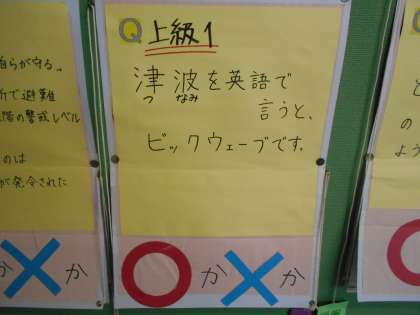 自らが守る。
所で避難
階の警戒レベル
のは
が発令された
か×か
Q 上級1
津波を英語で
つ なみ
言うと、
ビックウェーブです。
○か×か
と
の
よう